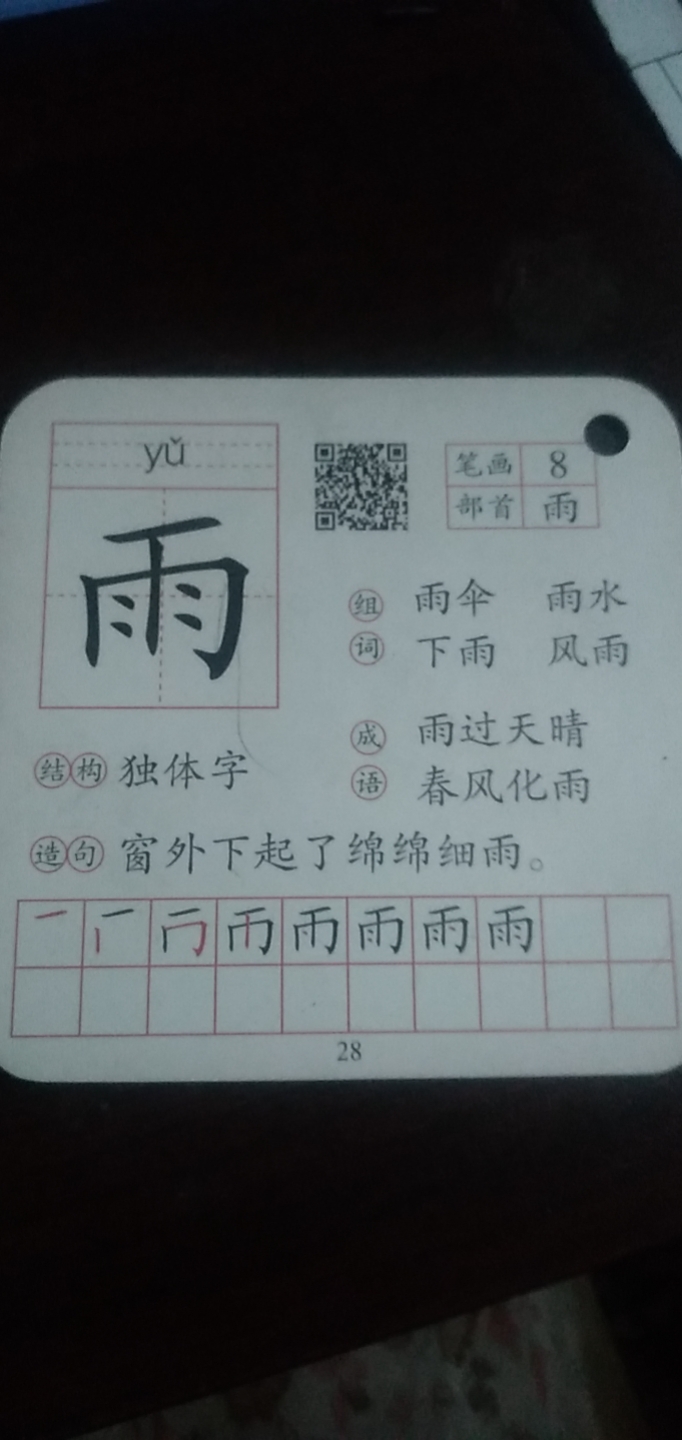 yǔ
雨
笔画 8
部首 雨
组词 雨伞 雨水
下雨 风雨
成语 雨过天晴
春风化雨
结构 独体字
造句 窗外下起了绵绵细雨。
雨 雨 雨 雨
28